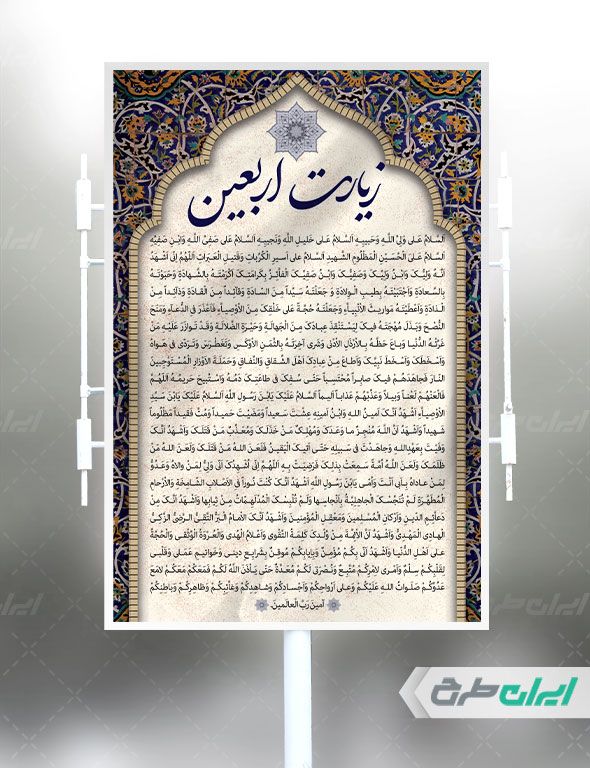 زیارت اربعین
اَلسَّلامُ عَلی وَلِیِّ اللَّهِ وَحَبیبِهِ اَلسَّلامُ عَلی خَلیلِ اللَّهِ وَنَجیبِهِ اَلسَّلامُ عَلی صَفِیِّ اللَّهِ وَابْنِ صَفِیِّهِ
اَلسَّلامُ عَلیَ الْحُسَیْنِ الْمَظْلُومِ الشَّهیدِ اَلسَّلامُ علی اَسیرِ الْکُرُباتِ وَقَتیلِ الْعَبَراتِ اَللّهُمَّ اِنّی اَشْهَدُ
اَنَّهُ وَلِیُّکَ وَابْنُ وَلِیِّکَ وَصَفِیُّکَ وَابْنُ صَفِیِّکَ الْفاَّئِزُ بِکَرامَتِکَ اَکْرَمْتَهُ بِالشَّهادَةِ وَحَبَوْتَهُ
بِالسَّعادَةِ وَاَجْتَبَیْتَهُ بِطیبِ الْوِلادَةِ وَ جَعَلْتَهُ سَیِّداً مِنَ السّادَةِ وَقآئِداً مِنَ الْقادَةِ وَذآئِداً مِنْ
الْذادَةِ وَاَعْطَیْتَهُ مَواریثَ الاْنْبِیاَّءِ وَجَعَلْتَهُ حُجَّةً عَلی خَلْقِکَ مِنَ الاْوْصِیاَّءِ فَاَعْذَرَ فیِ الدُّعآءِ وَمَنَحَ
النُّصْحَ وَبَذَلَ مُهْجَتَهُ فیکَ لِیَسْتَنْقِذَ عِبادَکَ مِنَ الْجَهالَةِ وَحَیْرَةِ الضَّلالَةِ وَقَدْ تَوازَرَ عَلَیْهِ مَنْ
غَرَّتْهُ الدُّنْیا وَباعَ حَظَّهُ بِالاْرْذَلِ الاْدْنی وَشَری آخِرَتَهُ بِالثَّمَنِ الاْوْکَسِ وَتَغَطْرَسَ وَتَرَدّی فی هَواهُ
وَاَسْخَطَکَ وَاَسْخَطَ نَبِیَّکَ وَاَطاعَ مِنْ عِبادِکَ اَهْلَ الشِّقاقِ وَالنِّفاقِ وَحَمَلَةَ الاْوْزارِ الْمُسْتَوْجِبینَ
النّارَ فَجاهَدَهُمْ فیکَ صابِراً مُحْتَسِباً حَتّی سُفِکَ فی طاعَتِکَ دَمُهُ وَاسْتُبیحَ حَریمُهُ اَللّهُمَّ
فَالْعَنْهُمْ لَعْناً وَبیلاً وَعَذِّبْهُمْ عَذاباً اَلیماً اَلسَّلامُ عَلَیْکَ یَابْنَ رَسُولِ اللَّهِ اَلسَّلامُ عَلَیْکَ یَابْنَ سَیِّدِ
الاْوْصِیاَّءِ اَشْهَدُ اَنَّکَ اَمینُ اللهِ وَابْنُ اَمینِهِ عِشْتَ سَعیداً وَمَضَیْتَ حَمیداً وَمُتَّ فَقیداً مَظْلُوماً
شَهیداً وَاَشْهَدُ اَنَّ اللَّهَ مُنْجِزٌ ما وَعَدَکَ وَمُهْلِکٌ مَنْ خَذَلَکَ وَمُعَذِّبٌ مَنْ قَتَلَکَ وَاَشْهَدُ اَنَّکَ
وَفَیْتَ بِعَهْدِاللهِ وَجاهَدْتَ فی سَبیلِهِ حَتّی اَتیکَ الْیَقینُ فَلَعَنَ اللهُ مَنْ قَتَلَکَ وَلَعَنَ اللهُ مَنْ
ظَلَمَکَ وَلَعَنَ اللَّهُ اُمَّةً سَمِعَتْ بِذلِکَ فَرَضِیَتْ بِهِ اَللّهُمَّ اِنّی اُشْهِدُکَ اَنّی وَلِیُّ لِمَنْ والاهُ وَعَدُوٌّ
لِمَنْ عاداهُ بِاَبی اَنْتَ وَاُمّی یَابْنَ رَسُولِ اللَّهِ اَشْهَدُ اَنَّکَ کُنْتَ نُوراً فیِ الاْصْلابِ الشّامِخَةِ وَالاْرْحامِ
الْمُطَهَّرَةِ لَمْ تُنَجِّسْکَ الْجاهِلِیَّةُ بِاَنْجاسِها وَلَمْ تُلْبِسْکَ الْمُدْلَهِمّاتُ مِنْ ثِیابِها وَاَشْهَدُ اَنَّکَ مِنْ
دَعاَّئِمِ الدّینِ وَاَرْکانِ الْمُسْلِمینَ وَمَعْقِلِ الْمُؤْمِنینَ وَاَشْهَدُ اَنَّکَ الاْمامُ الْبَرُّ التَّقِیُّ الرَّضِیُّ الزَّکِیُّ
الْهادِی الْمَهْدِیُّ وَاَشْهَدُ اَنَّ الاْئِمَّةَ مِنْ وُلْدِکَ کَلِمَةُ التَّقْوی وَاَعْلامُ الْهُدی وَالْعُرْوَةُ الْوُثْقی وَالْحُجَّةُ
عَلی اَهْلِ الدُّنْیا وَاَشْهَدُ اَنّی بِکُمْ مُؤْمِنٌ وَبِاِیابِکُمْ مُوقِنٌ بِشَرایِعِ دینی وَخَواتیمِ عَمَلی وَقَلْبی
لِقَلْبِکُمْ سِلْمٌ وَاَمْری لاِمْرِکُمْ مُتَّبِعٌ وَنُصْرَتی لَکُمْ مُعَدَّةٌ حَتّی یَاْذَنَ اللَّهُ لَکُمْ فَمَعَکُمْ مَعَکُمْ لامَعَ
عَدُوِّکُمْ صَلَواتُ اللهِ عَلَیْکُمْ وَعلی اَرْواحِکُمْ وَاَجْسادِکُمْ وَشاهِدِکُمْ وَغاَّئِبِکُمْ وَظاهِرِکُمْ وَباطِنِکُمْ
آمینَ رَبَّ الْعالَمینَ.
ایران طرح